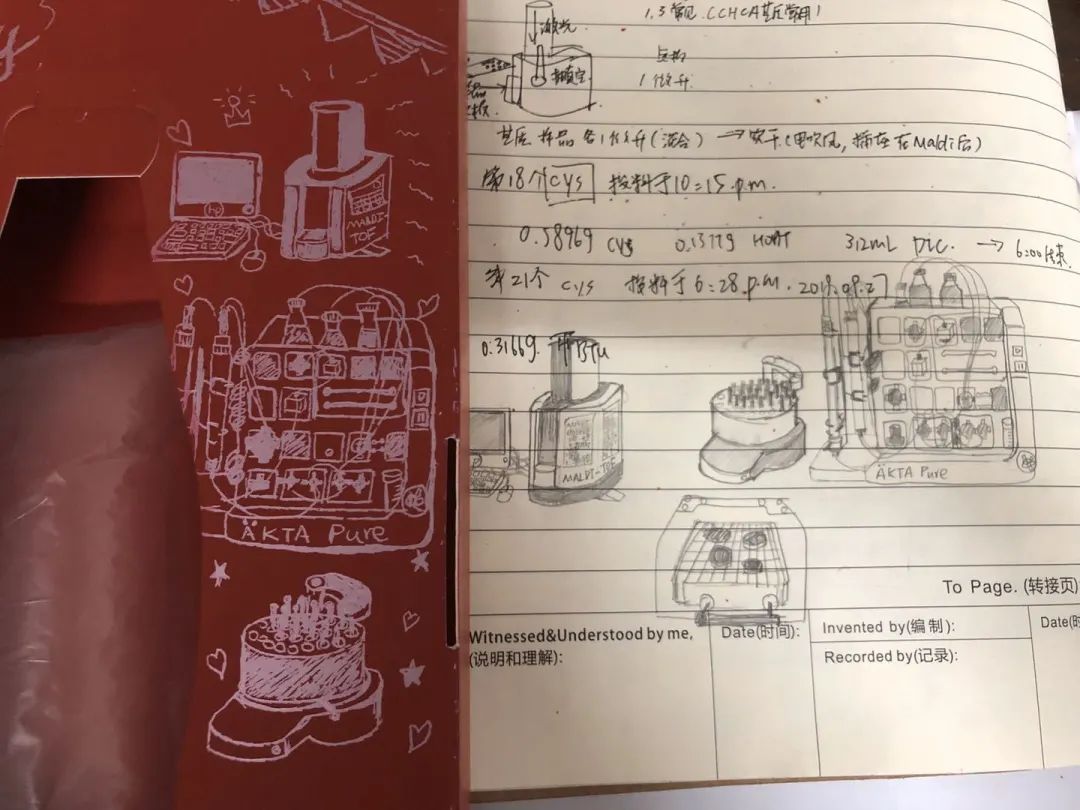 y
hp
MALDI-
TOF
ÄKTA Pure
1.3 常见 CCHCA基质常用
激光
抽真空
点板
1微升
基质 样品 各1微升(混合) → 吹干(电吹风, 插在在Maldi后)
第18个 Cys 投料于10:15 p.m.
0.5896g Cys 0.1377g HOBT 312mL DIC. → 6:00结束
第21个 Cys 投料于6:28 p.m. 2019.09.27
0.3166g
MALDI-TOF
ÄKTA Pure
To Page. (转接页)
Witnessed&Understood by me,
(说明和理解):
Date(时间):
Invented by(编 制):
Recorded by(记录):
Date(时